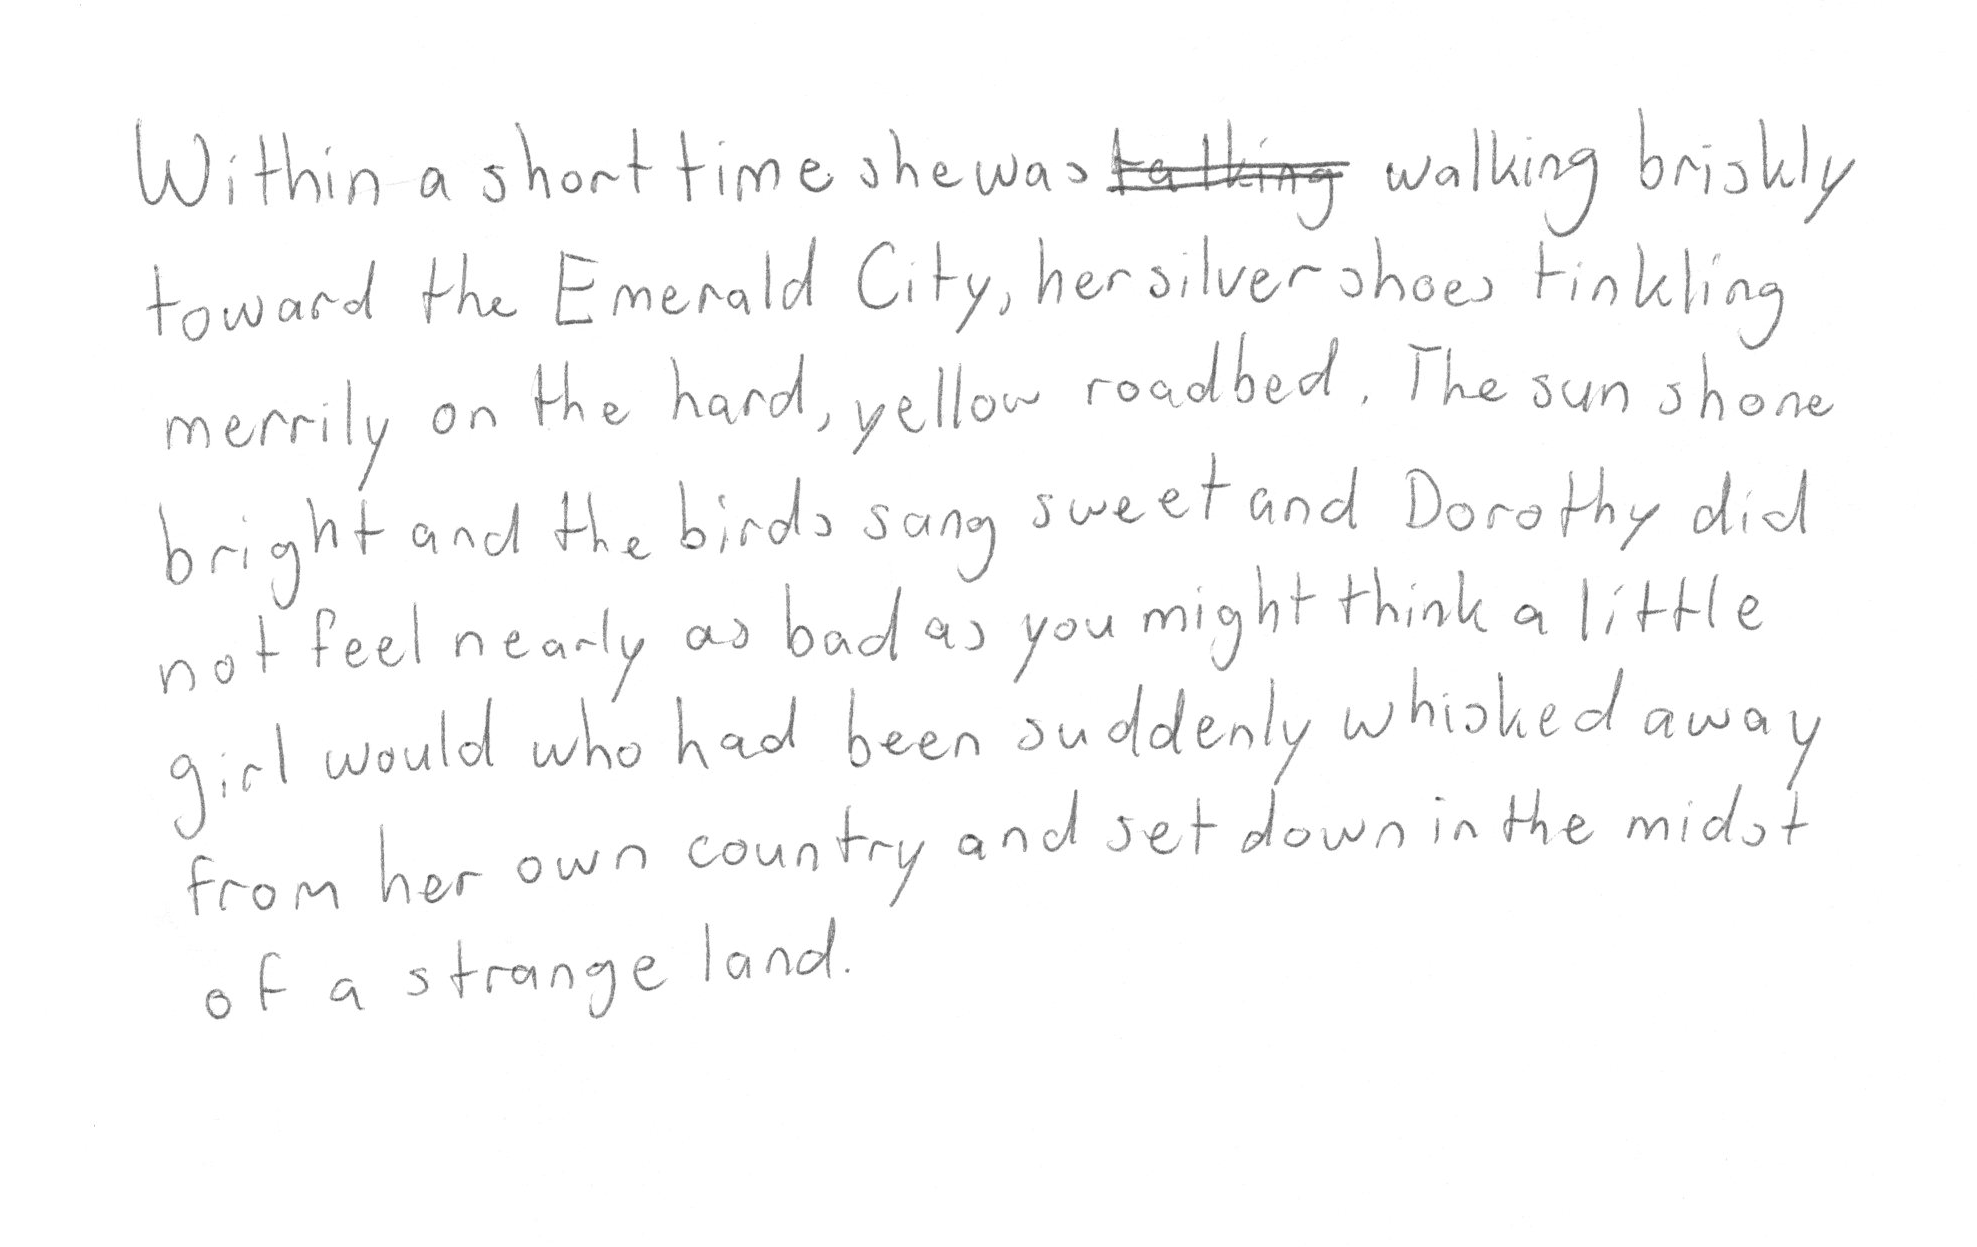 Within a short time she was talking walking briskly
toward the Emerald City, her silver shoes tinkling
merrily on the hard, yellow roadbed. The sun shone
bright and the birds sang sweet and Dorothy did
not feel nearly as bad as you might think a little
girl would who had been suddenly whisked away
from her own country and set down in the midst
of a strange land.